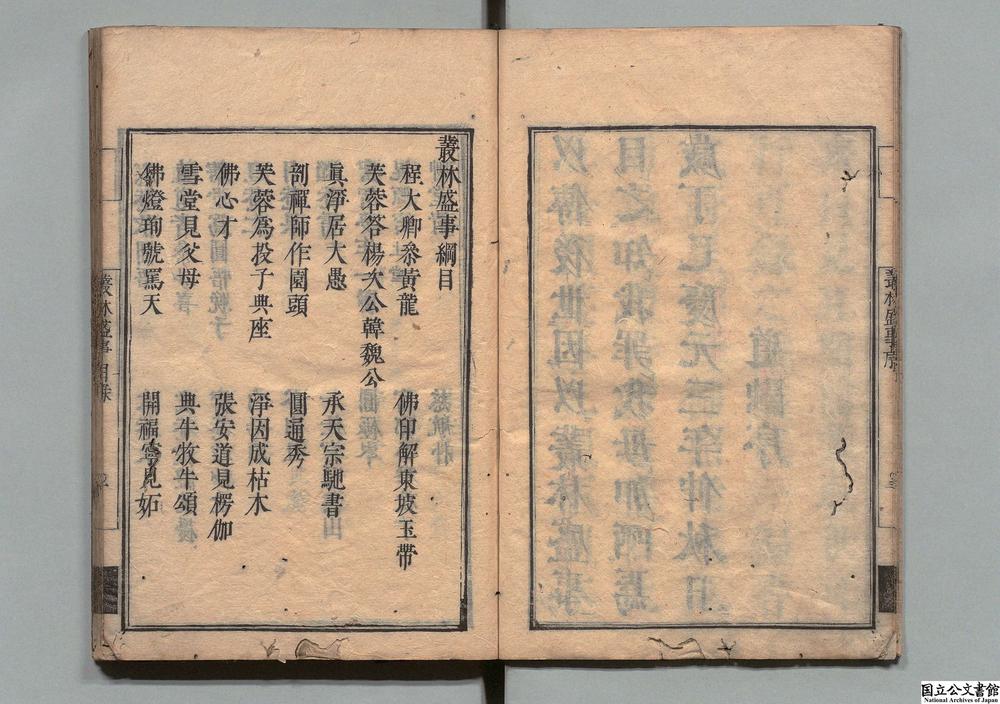 叢林盛事綱目
程大卿叅黄龍　佛印解東坡玉帶
芙蓉答楊次公韓魏公
眞淨居大愚　承天宗馳書
剖禪師作園頭　圓通秀
芙蓉爲投子典座　淨因成枯木
佛心才　張安道見楞伽
雪堂見父母　典牛牧牛頌
佛燈珣號罵天　開福寧見妬
叢林盛事序
叢林盛事目錄
国立公文書館
National Archives of Japan